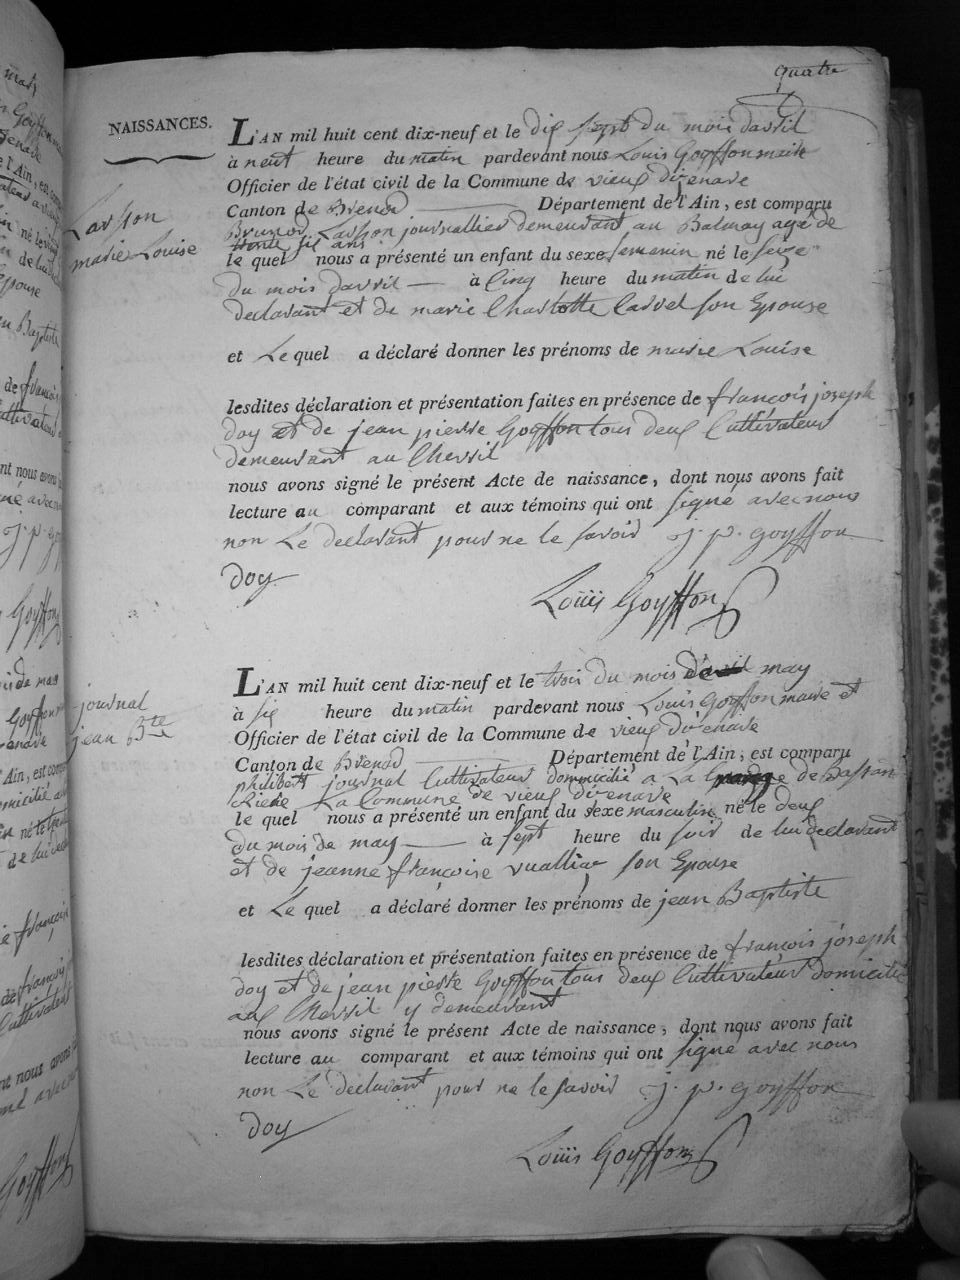 quatre
NAISSANCES.
L'AN mil huit cent dix-neuf et le dix sept du mois davril
à neuf heure du matin pardevant nous Louis Goyffon maire
Officier de l'état civil de la Commune de vieux dizenave
Canton de Brenod Département de l'Ain, est comparu
Brunod Larson journallier demeurant au Balmay agé de
trente six ans
le quel nous a présenté un enfant du sexe femenin né le seize
du mois davril à Cinq heure du matin de lui
declarant et de marie Charlotte Carrel son Epouse
et Le quel a déclaré donner les prénoms de marie Louise
lesdites déclaration et présentation faites en présence de françois joseph
doy et de jean pierre Goyffon tous deux Cultivateur
demeurant au Chevril
nous avons signé le présent Acte de naissance, dont nous avons fait
lecture au comparant et aux témoins qui ont signé avec nous
non Le declarant pour ne le savoir j. p. goyffon
doy
Louis Goyffon
Larson
marie Louise
L'AN mil huit cent dix-neuf et le trois du mois de may
à six heure du matin pardevant nous Louis Goyffon maire et
Officier de l'état civil de la Commune de vieux dizenave
Canton de Brenod Département de l'Ain, est comparu
philibert journal Cultivateur domicilié a La de
La Commune de vieux dizenave
le quel nous a présenté un enfant du sexe masculin né le deux
du mois de may à sept heure du soir de lui declarant
et de jeanne françoise son Epouse
et Le quel a déclaré donner les prénoms de jean Baptiste
lesdites déclaration et présentation faites en présence de francois joseph
doy et de jean pierre Goyffon tous deux Cultivateur domicilié
au Chevril y demeurant
nous avons signé le présent Acte de naissance, dont nous avons fait
lecture au comparant et aux témoins qui ont signé avec nous
non Le declarant pour ne le savoir j. p. goyffon
doy
Louis Goyffon
journal
jean Bte